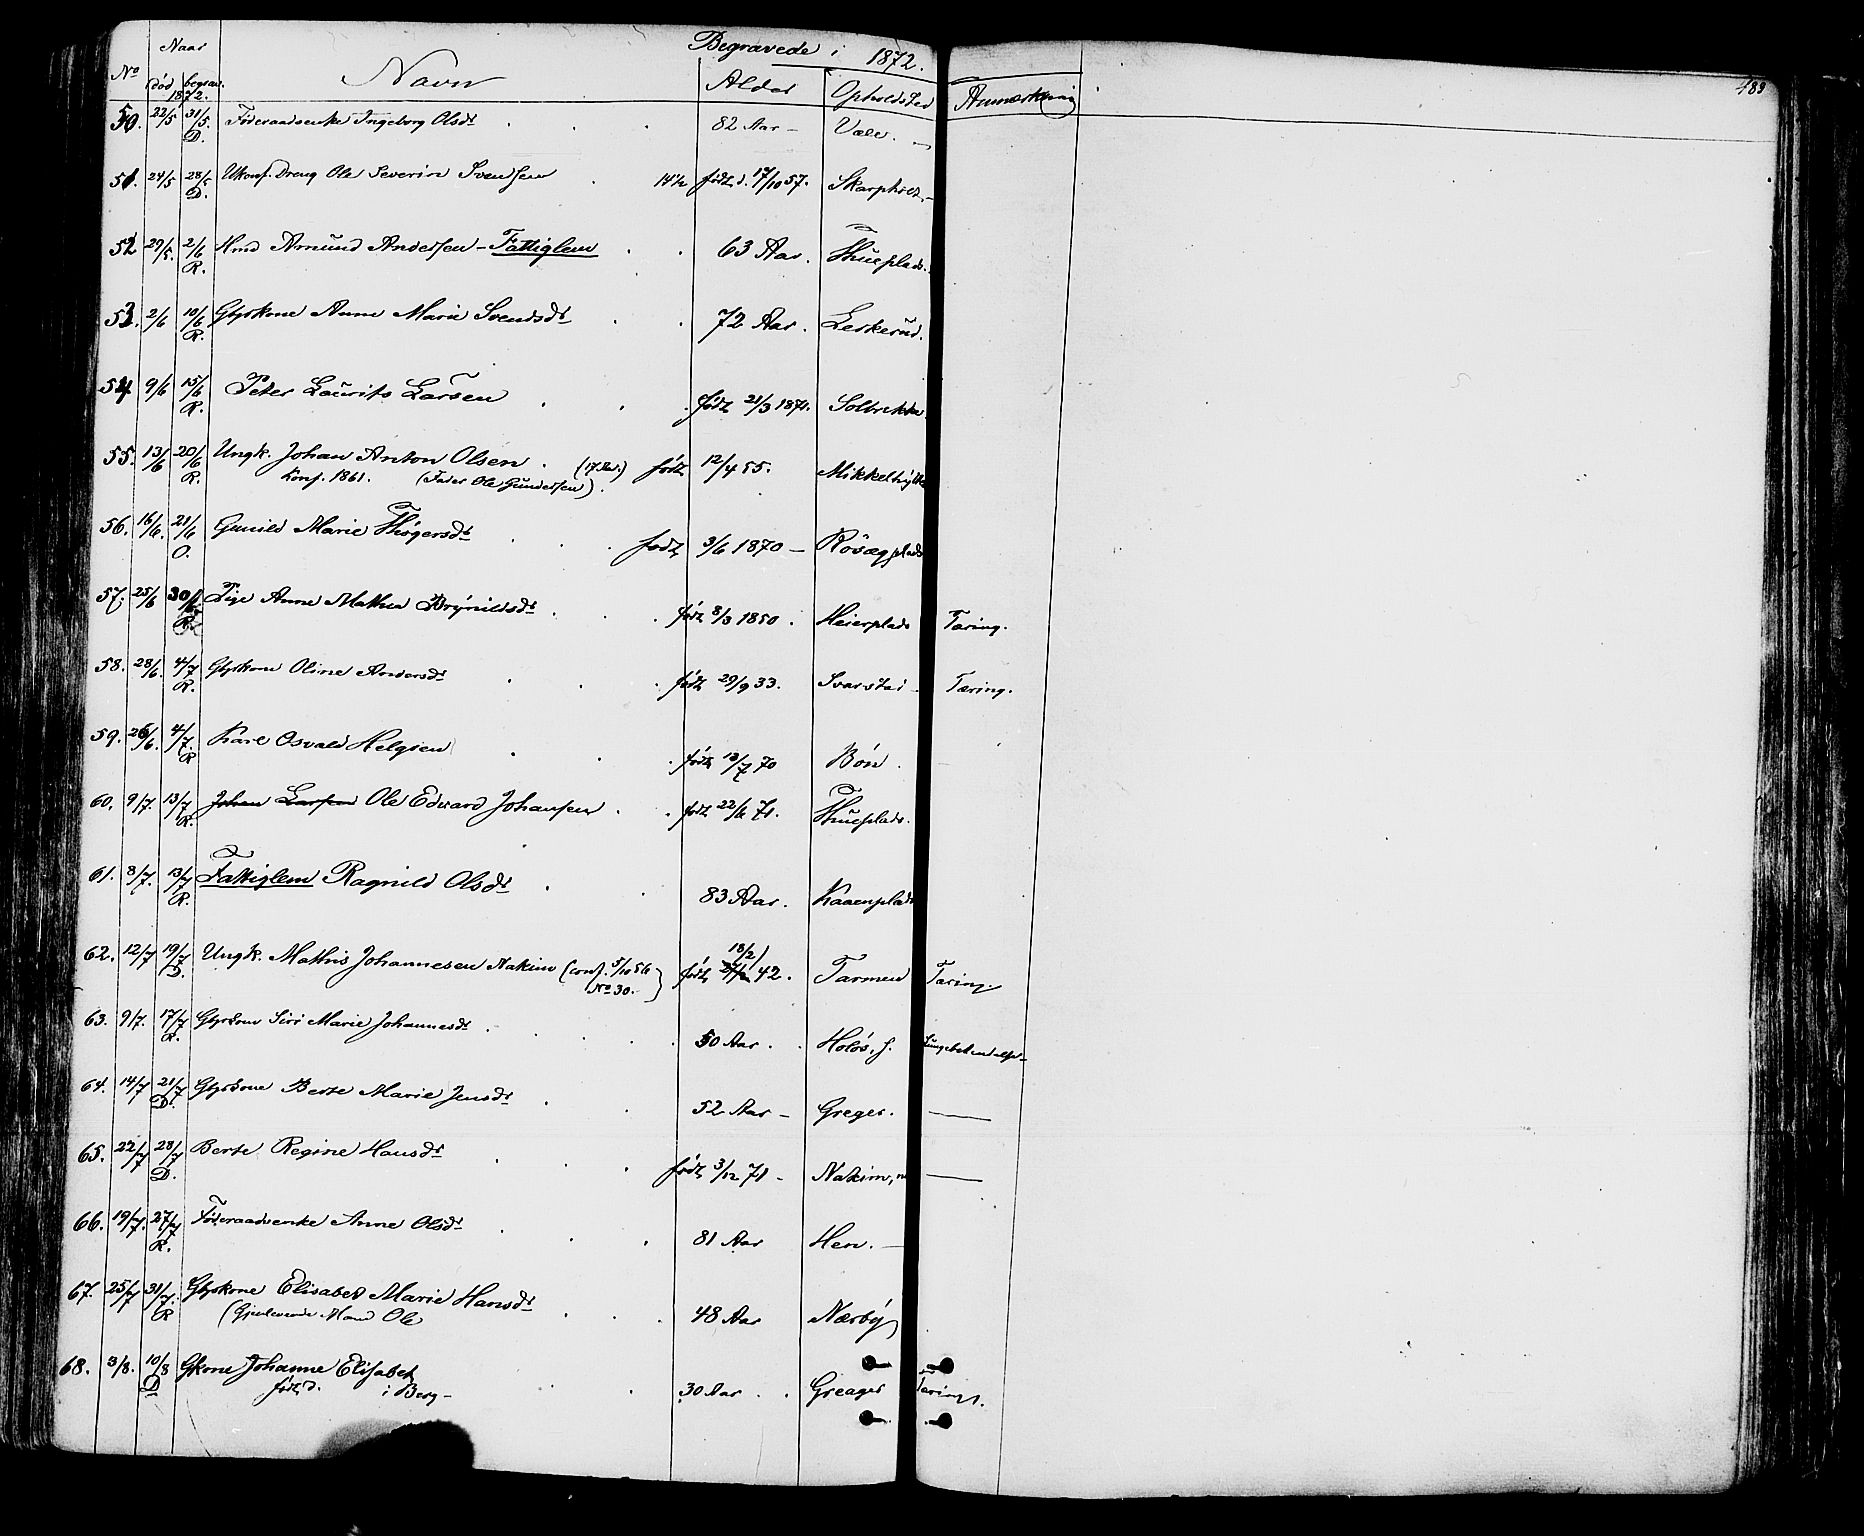 Begravede i 1872.
483
No Naar død begrav. 1872. Navn Alder Opholdsted Anmærkning
50. 22/5 31/5. D. Føderaadsenke Ingeborg Olsdt 82 Aar - Væle.
51. 24/5 28/5 D. Ukonf. Dreng Ole Severin Svendsen 14½ født d. /10 57. Skarphol
52 29/5. 2/6 R. Mnd Amund Andersen - Fattiglem 63 Aar. Thueplads.
53. 2/6 10/6 R. Gbrskone Anne Marie Svendsdt 72 Aar. Leskerud.
54 9/6 15/6 R. Peter Laurits Larsen født 21/3 1871. Solbrekke
55. 13/6 20/6 R. Ungk. Johan Anton Olsen (17 Aar) født 12/4 55. Mikkelbytte
Konf. 1861. (Fader Ole Gundersen).
56. 16/6. 21/6 O. Gunild Marie Thøgersdt født 3/6 1870 - Røsægplads
57. 25/6 30/6 R. Pige Anne Mathea Brynildsdt født 8/3 1850. Heierplads Tæring.
58. 28/6. 4/7 R. Gbrskone Oline Andersdt født 29/9 33. Svarstad Tæring.
59. 26/6. 4/7. R Karl Osvald Helgesen født 13/7 70 Bøn.
60. 9/7. 13/7 R. Johan Larsen Ole Edvard Johansen født 22/6 71. Thueplads.
61. 8/7. 13/7 R. Fattiglem Ragnild Olsdt 83 Aar. Kaaenplads
62. 12/7 19/7 D. Ungk. Mathis Johannesen Nakim (conf. 5/10 56 No 30.) født 18/2) 42. Tærmen Tæring.
63. 9/7. 17/7 R. Gbrskone Siri Marie Johannesdt 50 Aar. Holøs, s. Lungebetændelse
64. 14/7 21/7 D. Gbrskone Berte Marie Jensdt 52 Aar - Greger. ——
65. 22/7 28/7 D. Berte Regine Hansdt født 3/12 71 - Nakim, n ——
66. 19/7. 27/7 R. Føderaadsenke Anne Olsdt 81 Aar Hen. —
67. 25/7 31/7. R Gbrskone Elisabet Marie Hansdt 48 Aar Nærby
(Gjenlevende Mand Ole
68. 3/8. 10/8 D Gkone Johanne Elisabet 30 Aar. Greager Tæring.
født d. i Berg -